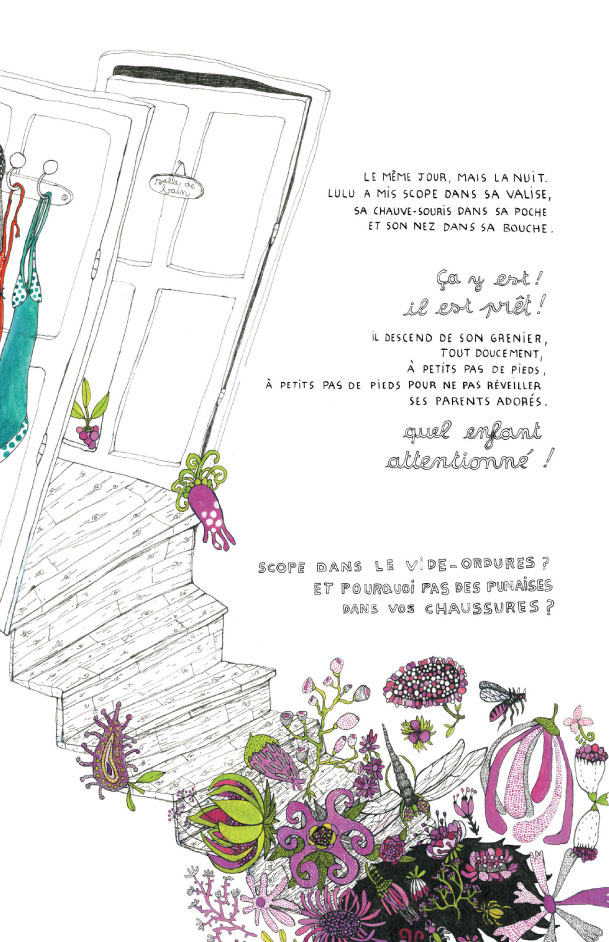 salle de
bain
LE MÊME JOUR, MAIS LA NUIT.
LULU A MIS SCOPE DANS SA VALISE,
SA CHAUVE-SOURIS DANS SA POCHE
ET SON NEZ DANS SA BOUCHE.
Ça y est!
il est prêt!
IL DESCEND DE SON GRENIER,
TOUT DOUCEMENT,
À PETITS PAS DE PIEDS,
À PETITS PAS DE PIEDS POUR NE PAS RÉVEILLER
SES PARENTS ADORÉS.
quel enfant
attentionné !
SCOPE DANS LE VIDE-ORDURES ?
ET POURQUOI PAS DES PUNAISES
DANS VOS CHAUSSURES ?